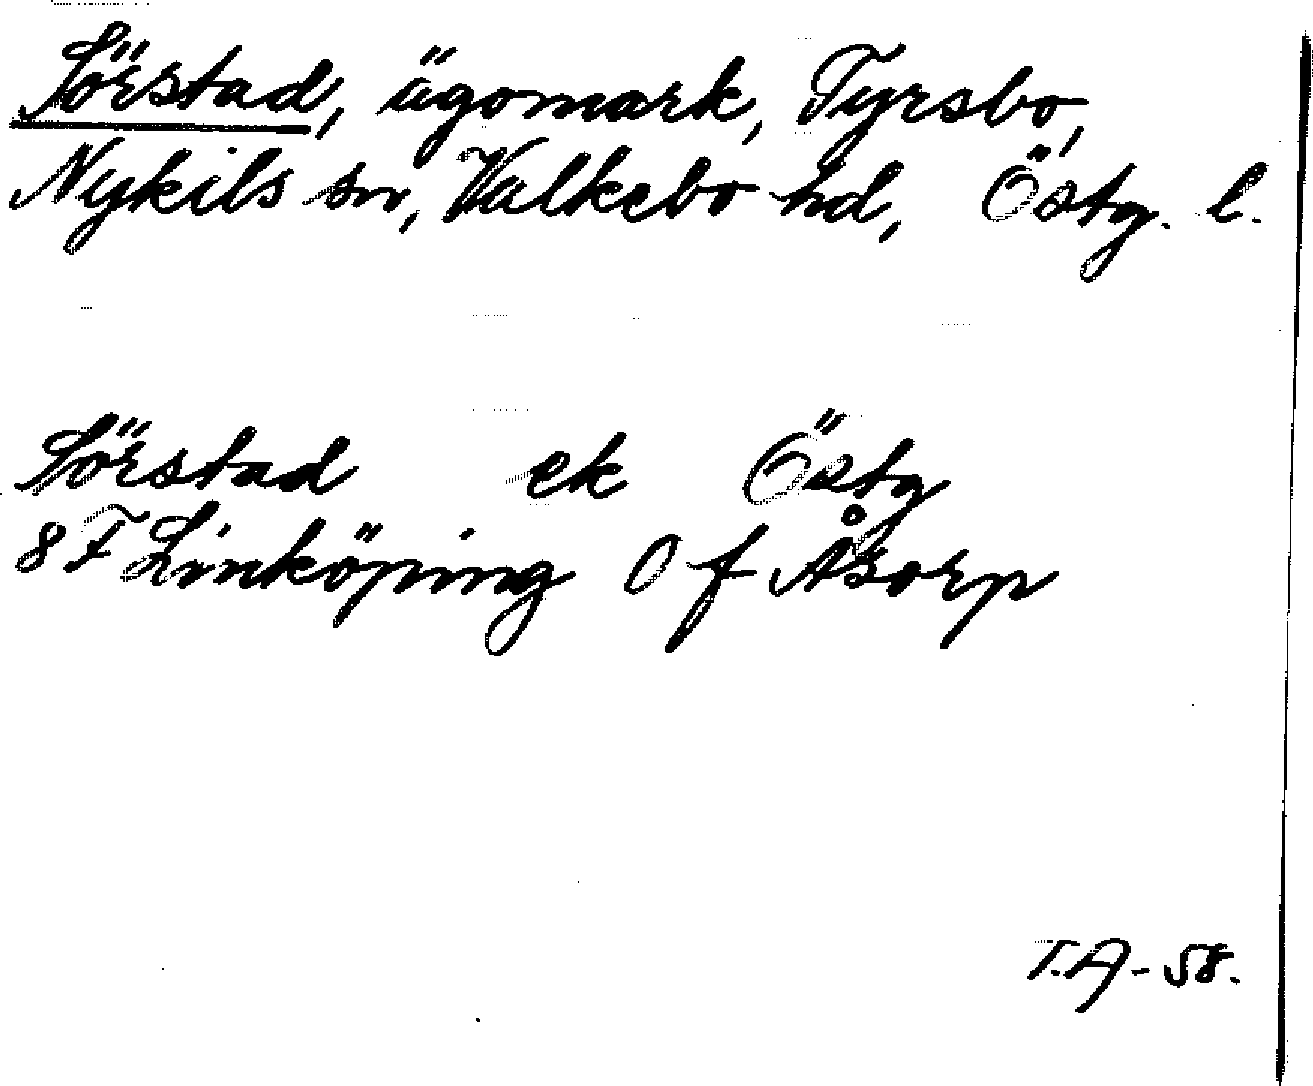 Sörstad, ägomark, Tyrsbo,
Nykils sn, Valkebo hd, Östg. l.
Sörstad ek Östg
8 F Linköping 0 f Åsorp
T.A - 58.